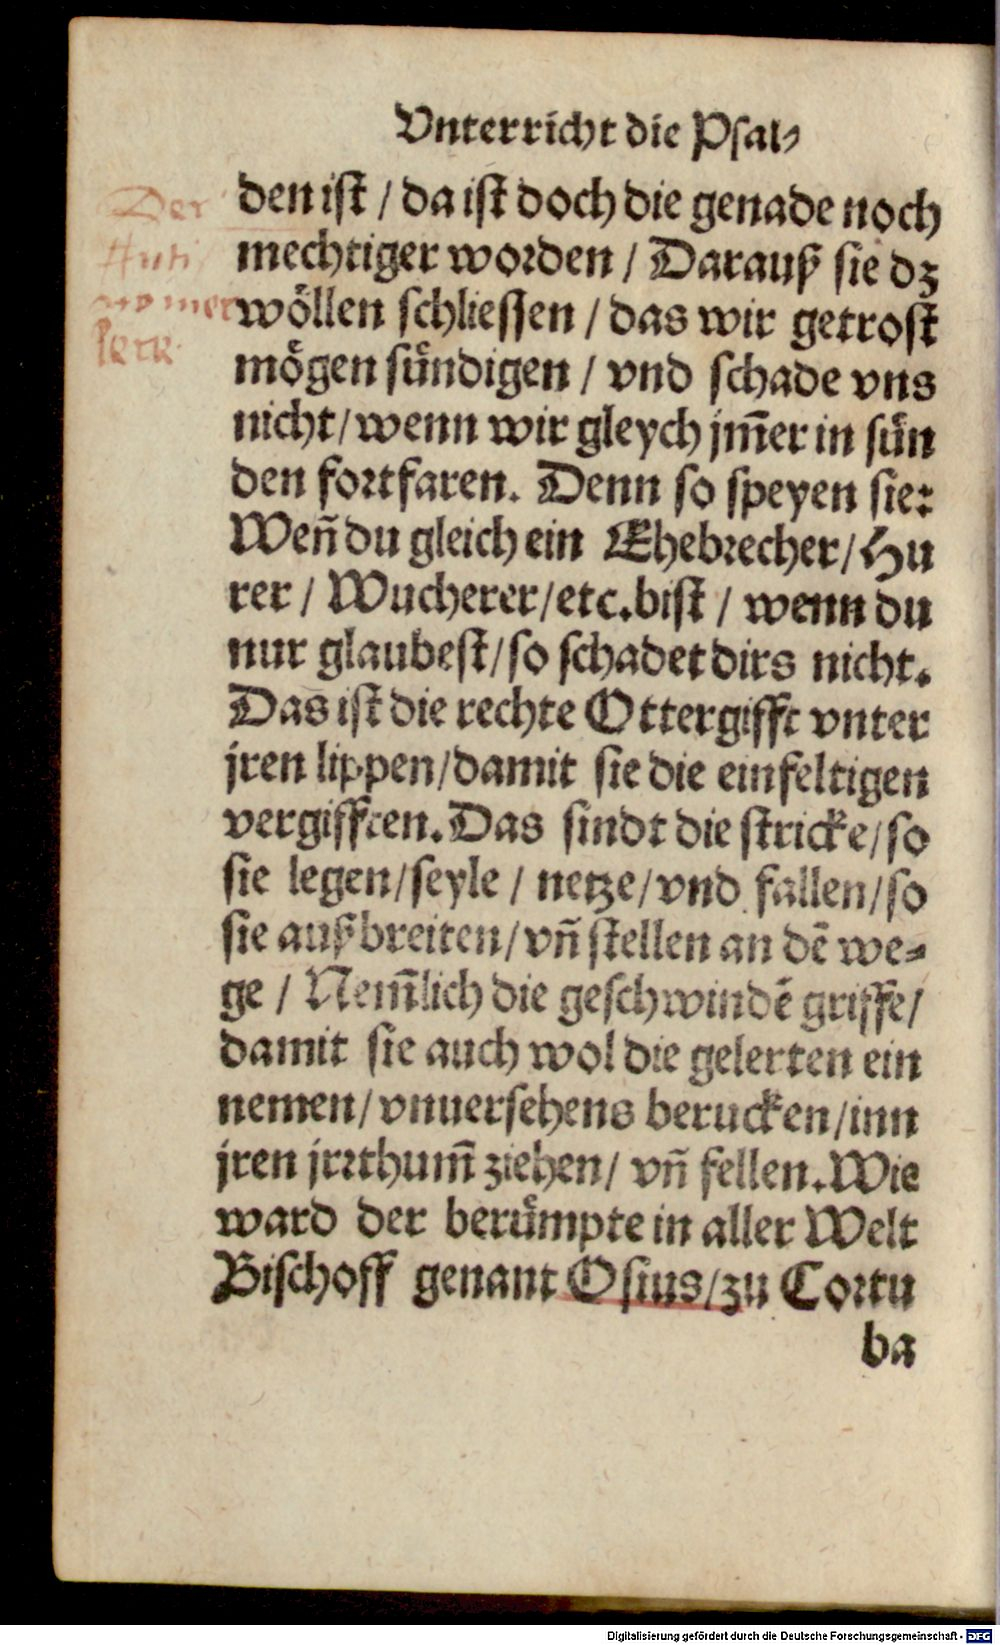 Vnterricht die Psal⸗
den ist / da ist doch die genade noch
mechtiger worden / Darauß sie dz
wöllen schliessen / das wir getrost
mögen sündigen / vnd schade vns
nicht / wenn wir gleych jm̃er in sün
den fortfaren. Denn so speyen sie:
Weñ du gleich ein Ehebrecher / Hu
rer / Wucherer / etc. bist / wenn du
nur glaubest / so schadet dirs nicht.
Das ist die rechte Ottergifft vnter
jren lippen / damit sie die einfeltigen
vergifften. Das sindt die stricke / so
sie legen / seyle / netze / vnd fallen / so
sie außbreiten / vñ stellen an dẽ we⸗
ge / Nem̃lich die geschwindẽ griffe /
damit sie auch wol die gelerten ein
nemen / vnuersehens berucken / inn
jren jrrthum̃ ziehen / vñ fellen. Wie
ward der berümpte in aller Welt
Bischoff genant Osius / zu Cortu
ba
Der
Anti
nomer
Digitalisierung gefördert durch die Deutsche Forschungsgemeinschaft - DFG